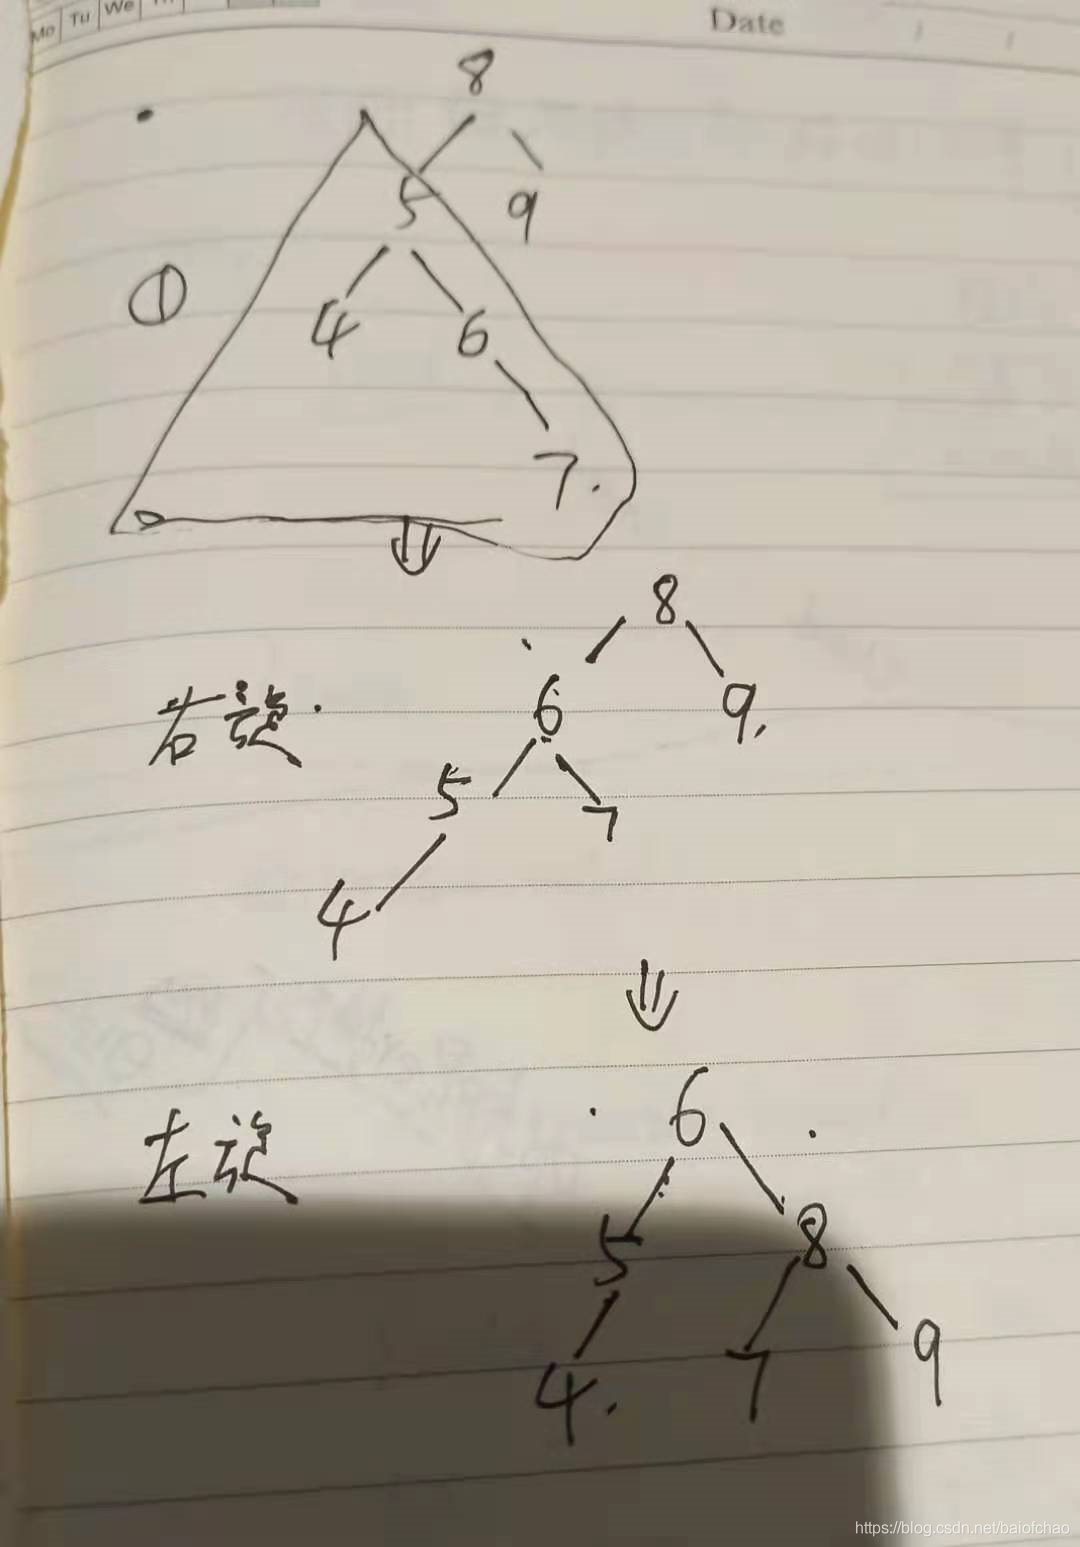 Mo Tu We
Date
8
5 9
①
4 6
7.
8
右旋.
6 9.
5 7
4
6
左旋
5 8
4. 7 9
https://blog.csdn.net/baiofchao